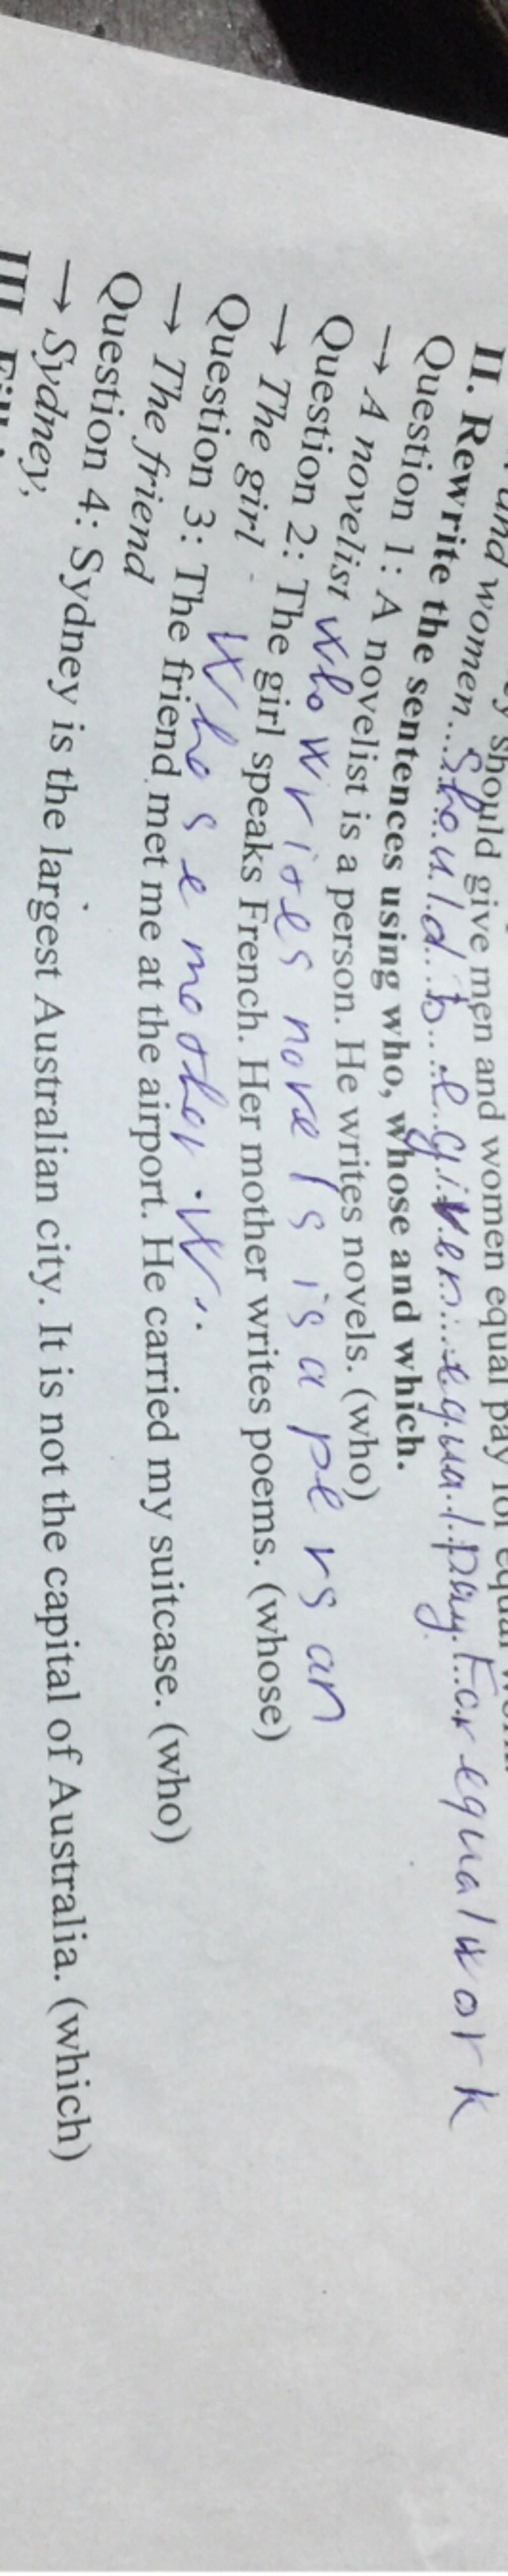 should give men and women equal pay for equal work.
and women...should be given equal pay For equal work
II. Rewrite the sentences using who, whose and which.
Question 1: A novelist is a person. He writes novels. (who)
→ A novelist who writes novels is a persan
Question 2: The girl speaks French. Her mother writes poems. (whose)
→ The girl whose mother W..
Question 3: The friend met me at the airport. He carried my suitcase. (who)
→ The friend
Question 4: Sydney is the largest Australian city. It is not the capital of Australia. (which)
→ Sydney,
III.